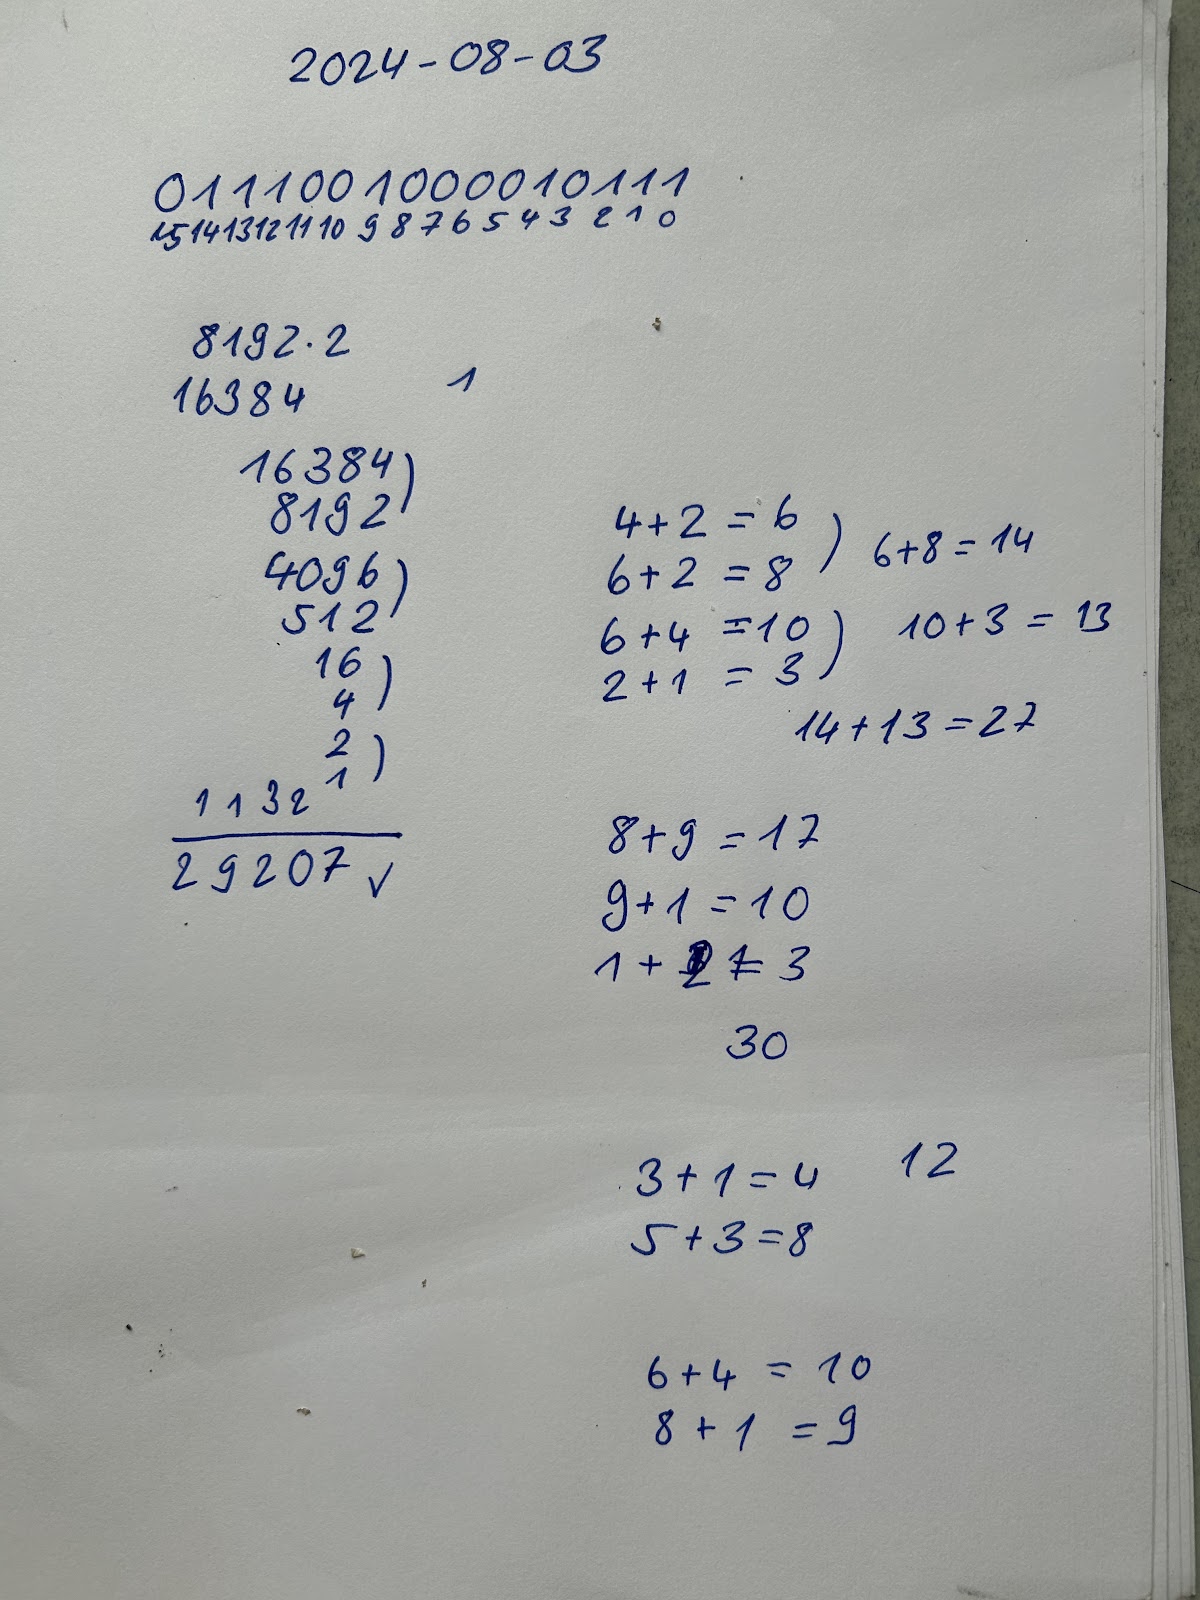 2024-08-03
0111001000010111
15 14 13 12 11 10 9 8 7 6 5 4 3 2 1 0
8192·2
16384
1
16384)
8192
4096)
512
16)
4
2)
1
1132
29207 ✓
4+2 = 6
6+2 = 8
) 6+8=14
6+4 =10
2+1 = 3
) 10+3 = 13
14+13=27
8+9 =17
9+1 =10
1 + 2 = 3
30
3+1=4
12
5+3=8
6+4 = 10
8+1 =9